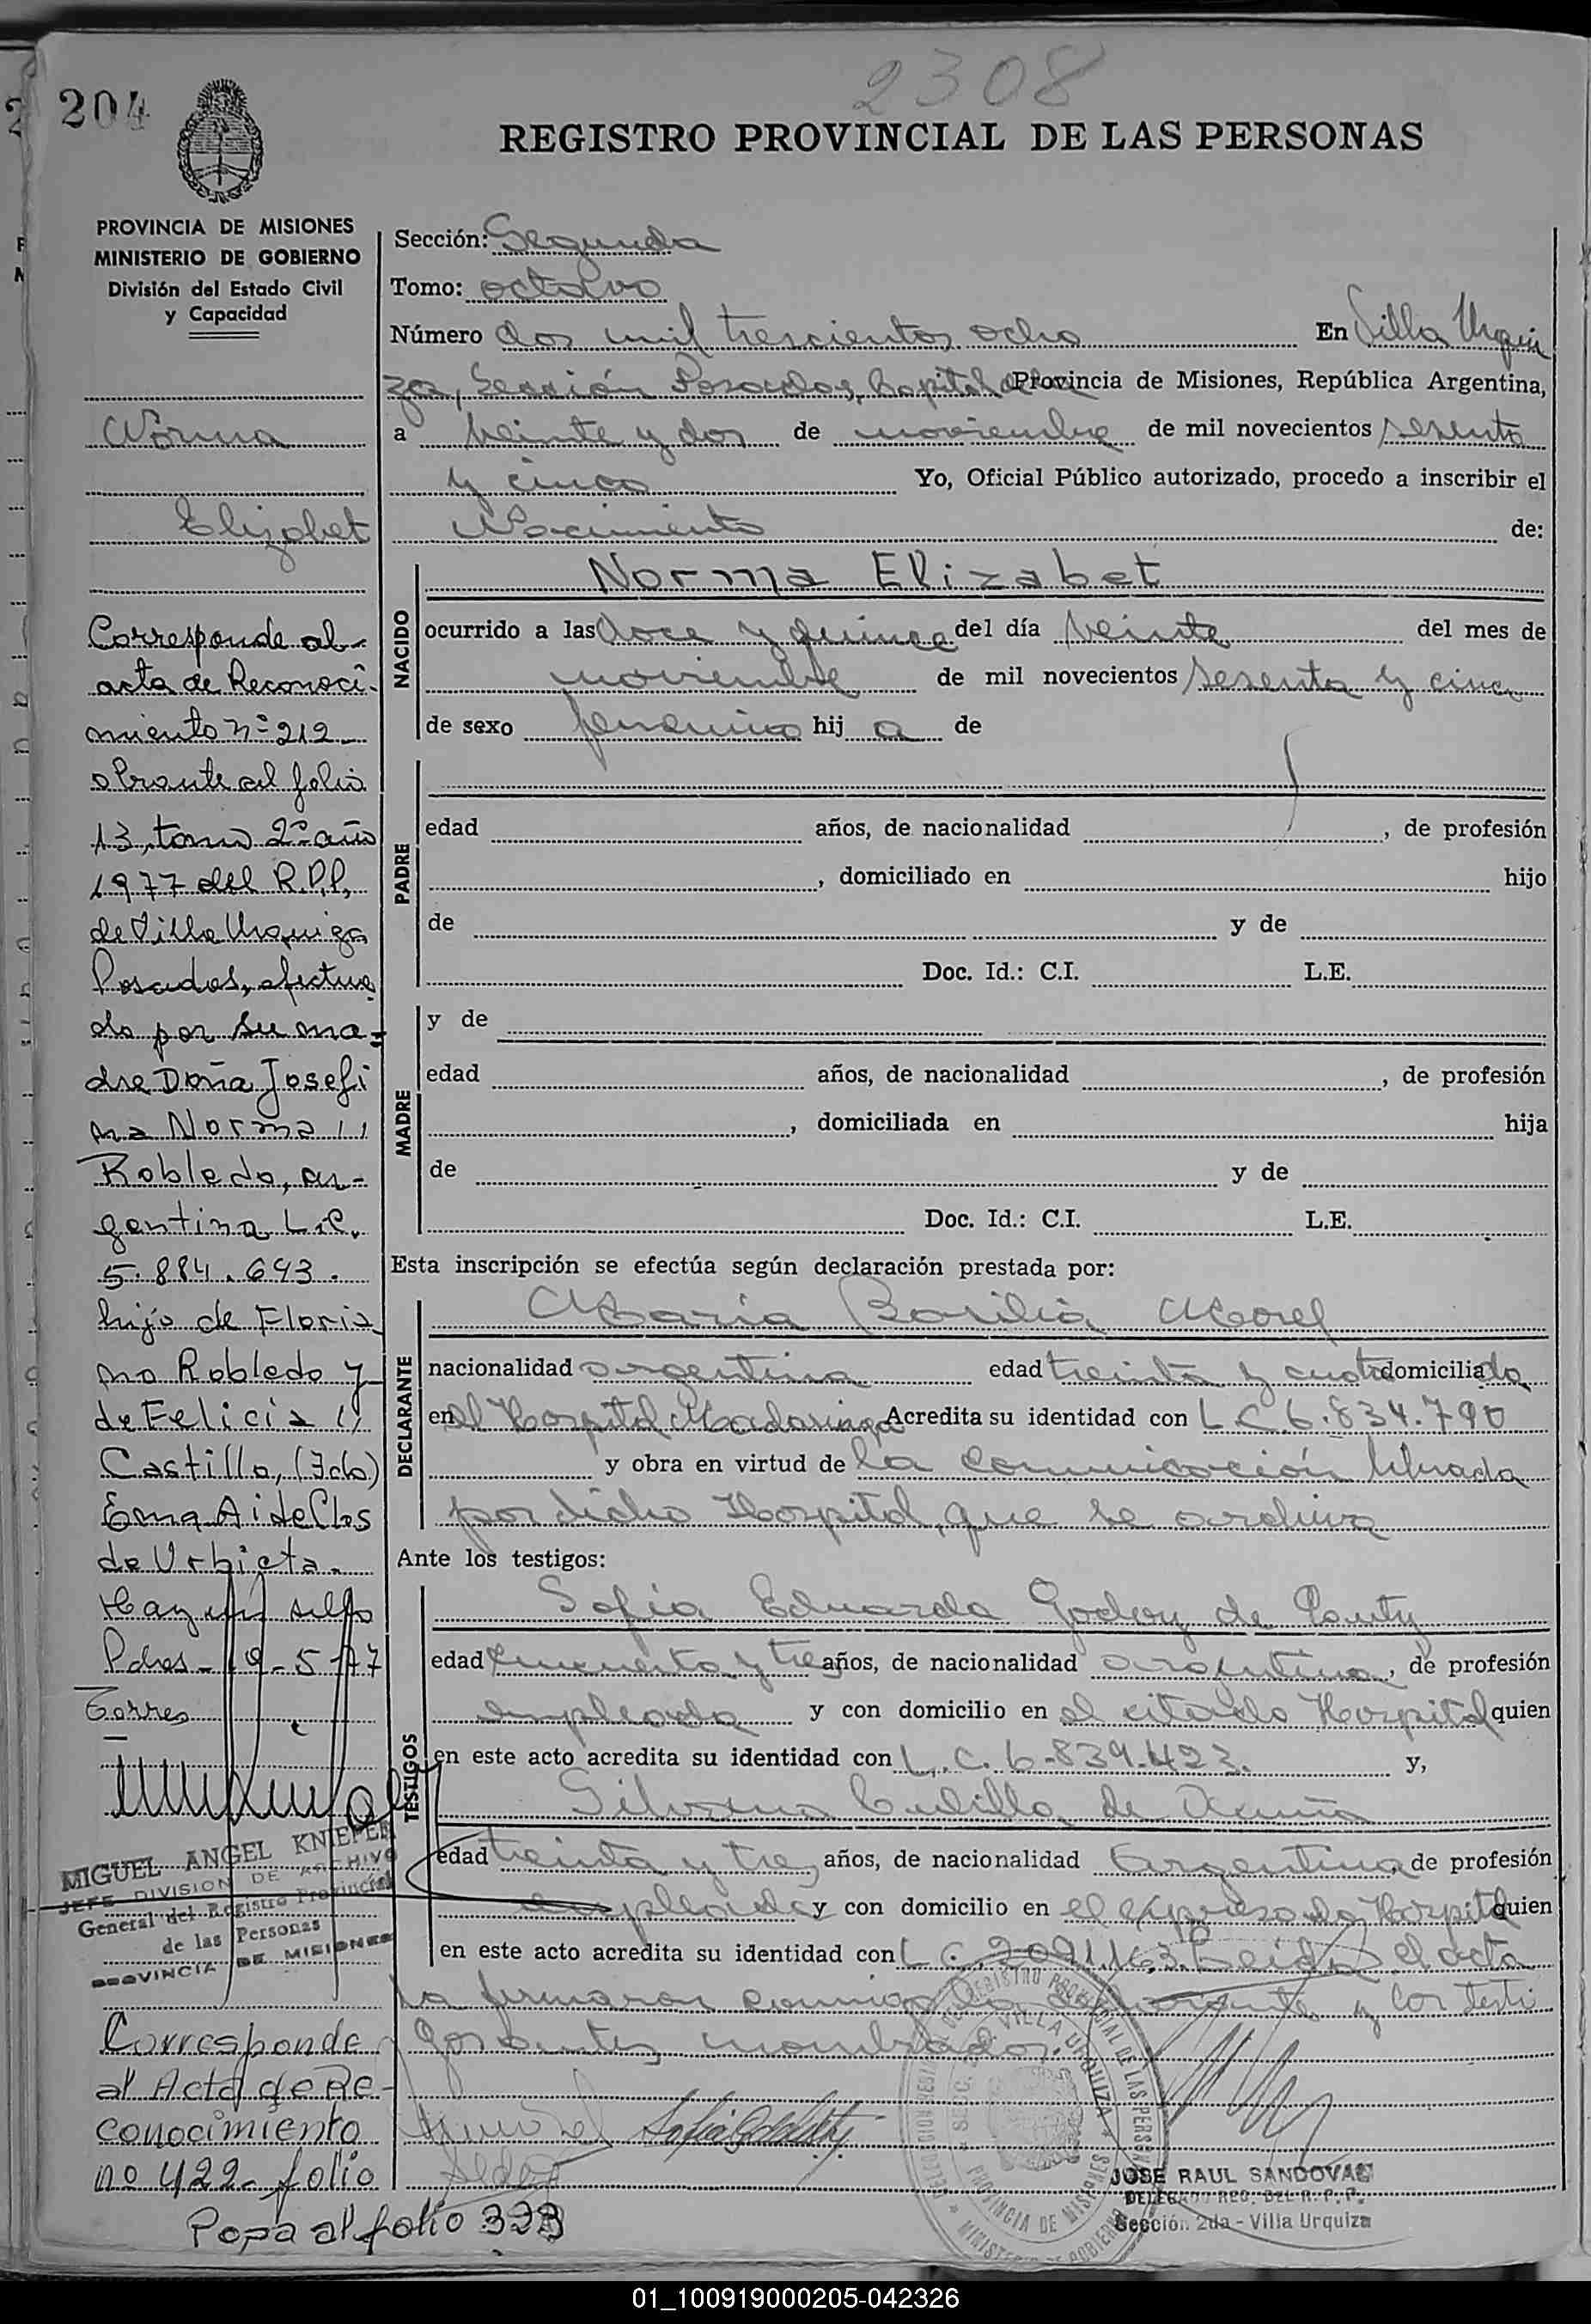 204
2308
REGISTRO PROVINCIAL DE LAS PERSONAS
PROVINCIA DE MISIONES
MINISTERIO DE GOBIERNO
División del Estado Civil
y Capacidad
Norma
Elizabet
Corresponde al
acta de Reconoci-
miento nº 212
obrante al folio
13, tomo 2º año
1977 del R.P.P.
de Villa Urquiza
Posadas, efectua
do por su ma-
dre Doña Josefi
na Norma
Robledo, ar-
gentina L.C.
5.884.643.
hija de Floria
no Robledo y
de Felicia
Castillo, (Fdo)
Ema Aide Clos
de Urbieta.
Hay un sello
Pdas - 19-5-77
Torres
MIGUEL ANGEL KNIEPER
JEFE DIVISION DE ARCHIVO
General del Registro Provincial
de las Personas
PROVINCIA DE MISIONES
Corresponde
al Acta de Re-
conocimiento
nº 422- folio
Pasa al folio 323
Sección: Segunda
Tomo: octavo
Número dos mil trescientos ocho En Villa Urqui
za, Sección Posadas, Capital de la Provincia de Misiones, República Argentina,
a veinte y dos de noviembre de mil novecientos sesenta
y cinco Yo, Oficial Público autorizado, procedo a inscribir el
Nacimiento de:
NACIDO
Norma Elizabet
ocurrido a las doce y quince del día veinte del mes de
noviembre de mil novecientos sesenta y cinco
de sexo femenino hij a de
PADRE
edad años, de nacionalidad , de profesión
, domiciliado en hijo
de y de
Doc. Id.: C.I. L.E.
MADRE
y de
edad años, de nacionalidad , de profesión
, domiciliada en hija
de y de
Doc. Id.: C.I. L.E.
Esta inscripción se efectúa según declaración prestada por:
DECLARANTE
Maria Basilia Morel
nacionalidad argentina edad treinta y cuatro domiciliada
en el Hospital Madariaga Acredita su identidad con L.C. 6.834.790
y obra en virtud de la comunicación librada
por dicho Hospital, que se archiva
Ante los testigos:
TESTIGOS
Sofia Eduarda Godoy de
edad cincuenta y tres años, de nacionalidad argentina, de profesión
empleada y con domicilio en el citado Hospital quien
en este acto acredita su identidad con L.C. 6.839.423. y,
Silvana de Acuña
edad treinta y tres años, de nacionalidad argentina, de profesión
empleada y con domicilio en el expresado Hospital quien
en este acto acredita su identidad con L.C. 2.091.163. Leida el acta
la firmaron conmigo la declarante y los testi
gos antes nombrados.
JOSE RAUL SANDOVAL
DELEGADO REG. DEL R. P. P.
Sección 2da - Villa Urquiza
01_100919000205-042326